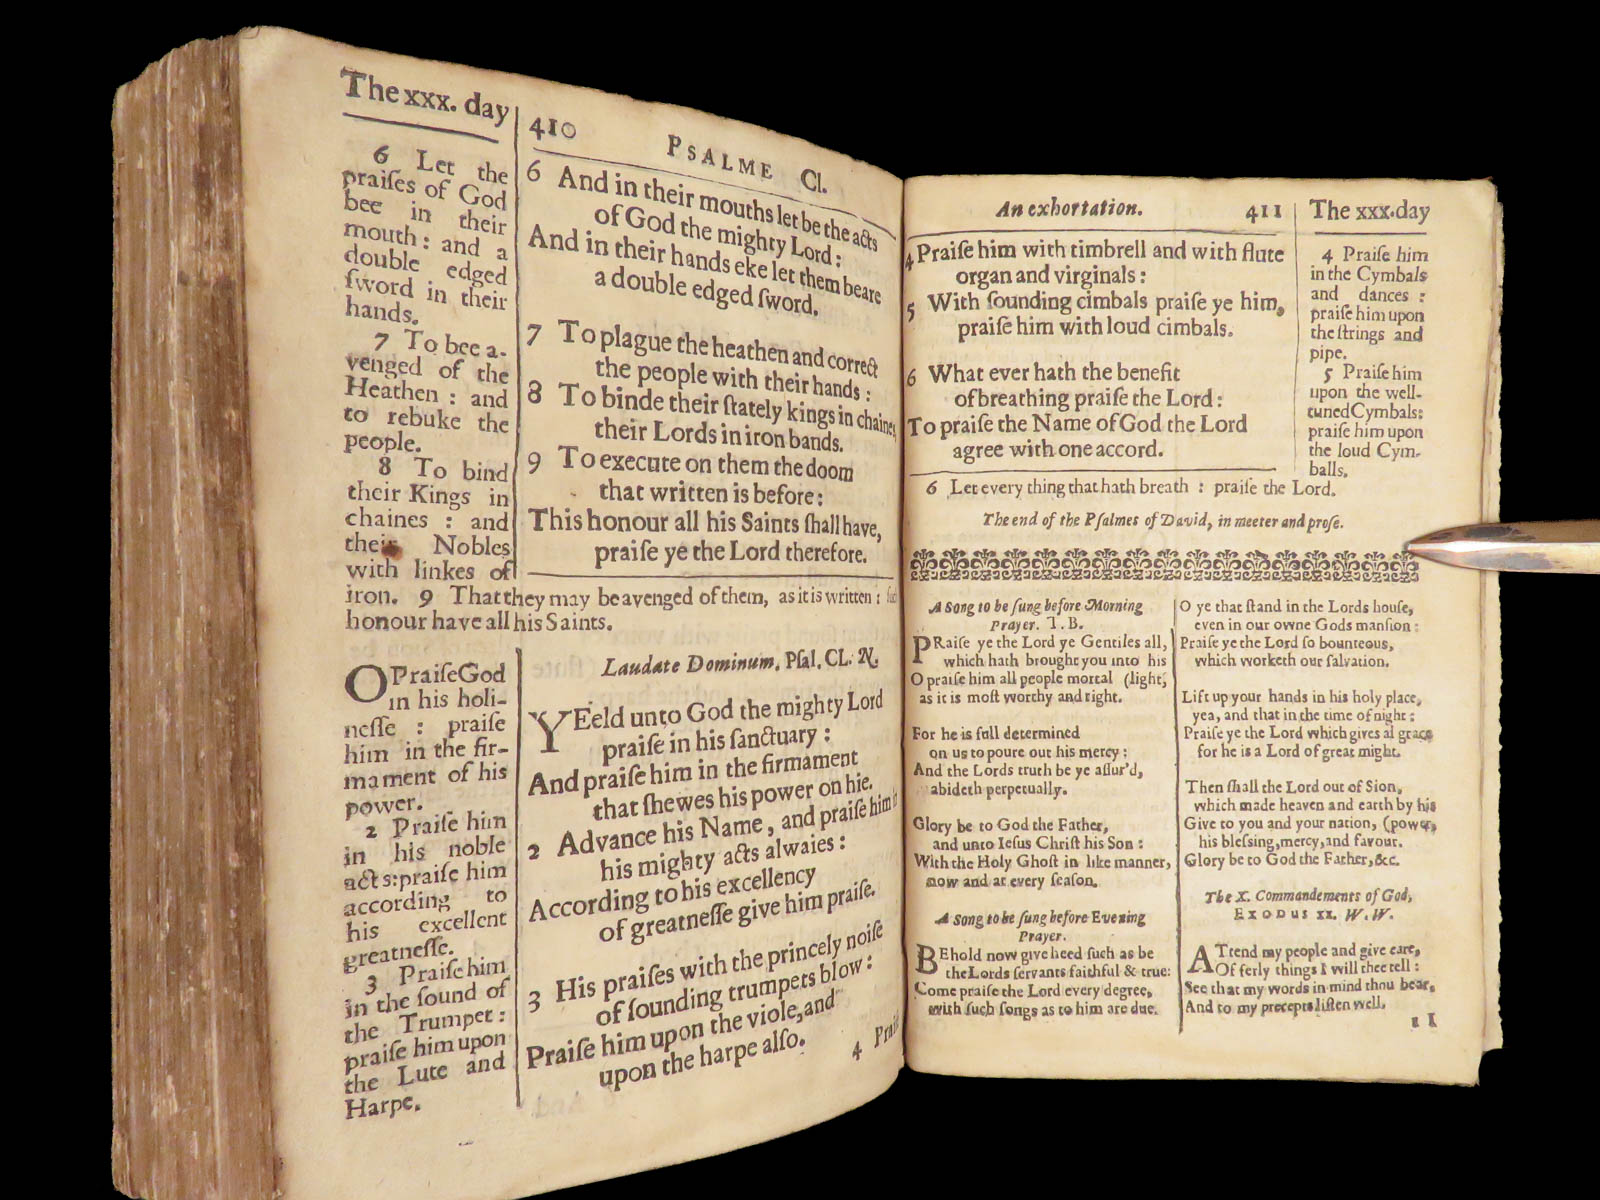 The xxx. day
6 Let the
praiſes of God
bee in their
mouth: and a
double edged
ſword in their
hands.
7 To bee a-
venged of the
Heathen : and
to rebuke the
people.
8 To bind
their Kings in
chaines : and
their Nobles
with linkes of
iron. 9 That they may be avenged of them, as it is written :
honour have all his Saints.
O Praiſe God
in his holi-
neſſe : praiſe
him in the fir-
mament of his
power.
2 Praiſe him
in his noble
acts: praiſe him
according to
his excellent
greatneſſe.
3 Praiſe him
in the ſound of
the Trumpet:
praiſe him upon
the Lute and
Harpe.
410 PSALME CL.
6 And in their mouths let be the acts
of God the mighty Lord :
And in their hands eke let them beare
a double edged ſword.
7 To plague the heathen and correct
the people with their hands :
8 To binde their ſtately kings in chaines
their Lords in iron bands.
9 To execute on them the doom
that written is before :
This honour all his Saints ſhall have,
praiſe ye the Lord therefore.
Laudate Dominum. Pſal. CL. N.
YEeld unto God the mighty Lord
praiſe in his ſanctuary :
And praiſe him in the firmament
that ſhewes his power on hie.
2 Advance his Name, and praiſe him
his mighty acts alwaies :
According to his excellency
of greatneſſe give him praiſe.
3 His praiſes with the princely noiſe
of ſounding trumpets blow :
Praiſe him upon the viole, and
upon the harpe alſo.
4
An exhortation. 411
4 Praiſe him with timbrell and with flute
organ and virginals :
5 With ſounding cimbals praiſe ye him,
praiſe him with loud cimbals.
6 What ever hath the benefit
of breathing praiſe the Lord :
To praiſe the Name of God the Lord
agree with one accord.
The xxx. day
4 Praiſe him
in the Cymbals
and dances :
praiſe him upon
the ſtrings and
pipe.
5 Praiſe him
upon the well-
tuned Cymbals:
praiſe him upon
the loud Cym-
balls.
6 Let every thing that hath breath : praiſe the Lord.
The end of the Pſalmes of David, in meeter and proſe.
A Song to be ſung before Morning
Prayer. T. B.
PRaiſe ye the Lord ye Gentiles all,
which hath brought you into his
O praiſe him all people mortal (light,
as it is moſt worthy and right.
For he is full determined
on us to poure out his mercy :
And the Lords truth be ye aſſur'd,
abideth perpetually.
Glory be to God the Father,
and unto Ieſus Chriſt his Son :
With the Holy Ghoſt in like manner,
now and at every ſeaſon.
A Song to be ſung before Evening
Prayer.
BEhold now give heed ſuch as be
the Lords ſervants faithful & true:
Come praiſe the Lord every degree,
with ſuch ſongs as to him are due.
O ye that ſtand in the Lords houſe,
even in our owne Gods manſion :
Praiſe ye the Lord ſo bounteous,
which worketh our ſalvation.
Lift up your hands in his holy place,
yea, and that in the time of night :
Praiſe ye the Lord which gives al grace
for he is a Lord of great might.
Then ſhall the Lord out of Sion,
which made heaven and earth by his
Give to you and your nation, (power,
his bleſſing, mercy, and favour.
Glory be to God the Father, &c.
The X. Commandements of God,
EXODUS xx. W. W.
ATtend my people and give eare,
Of ferly things I will thee tell :
See that my words in mind thou bear,
And to my precepts liſten well.
11